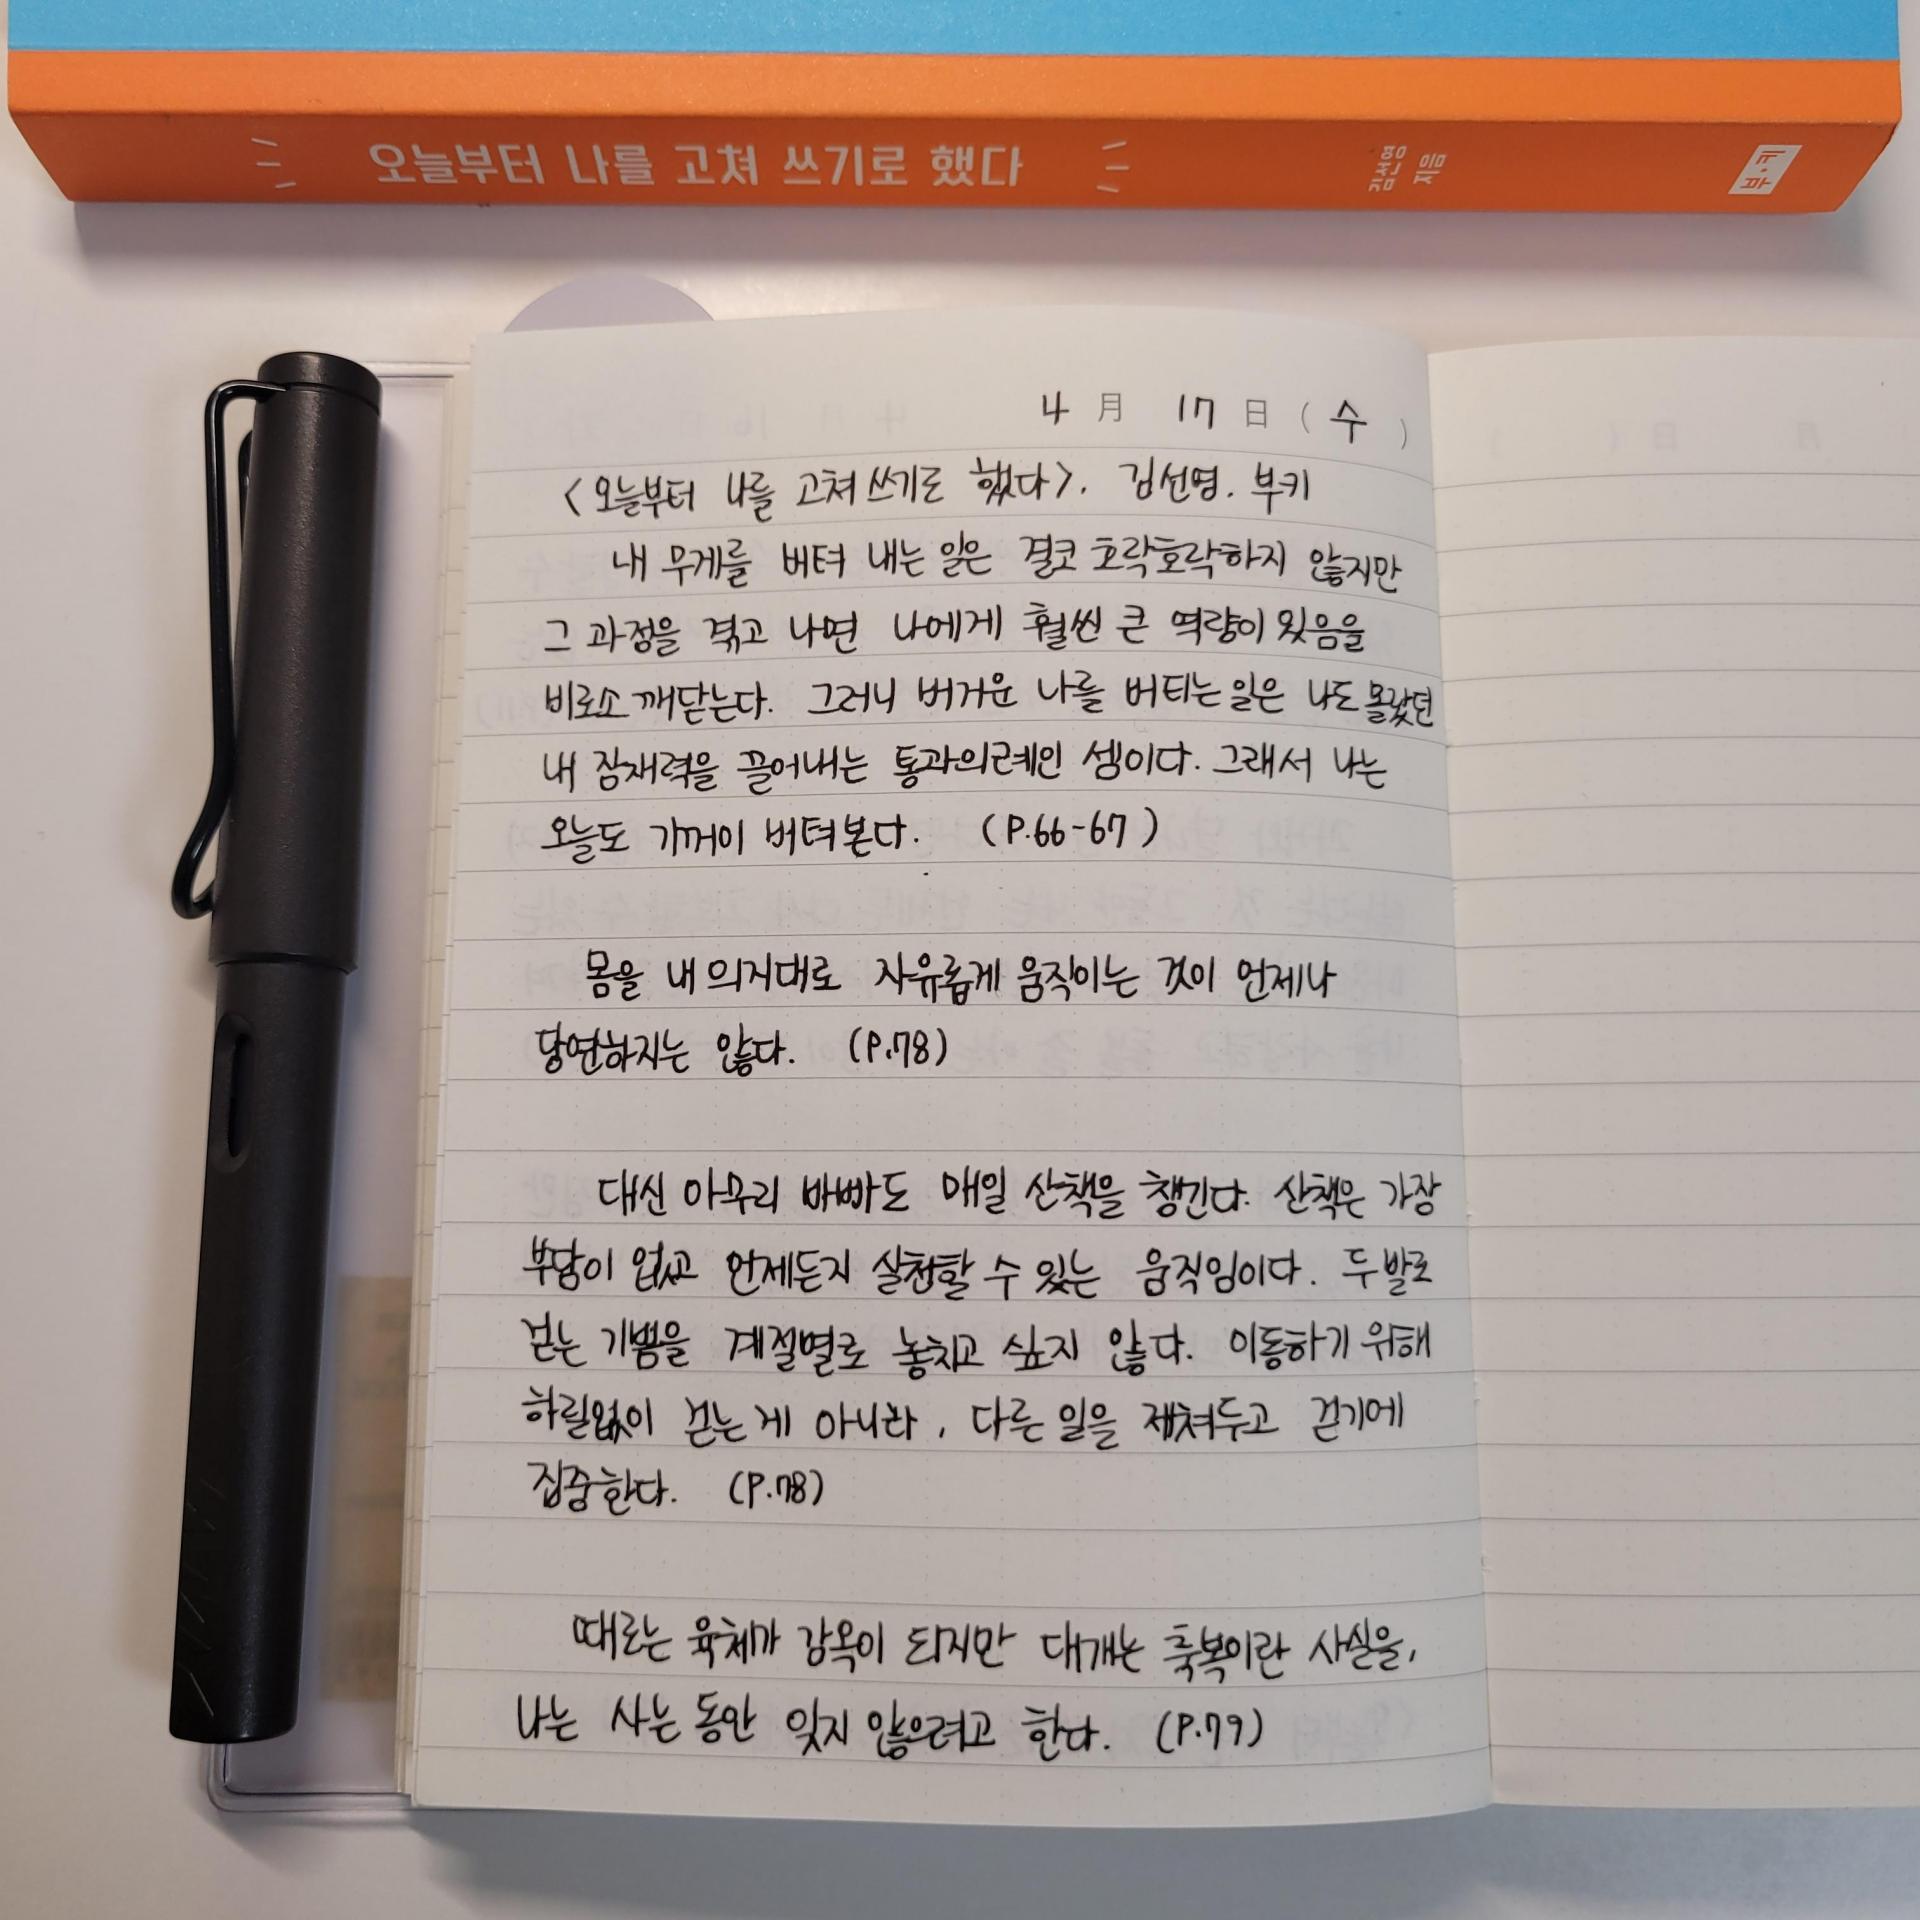 오늘부터 나를 고쳐 쓰기로 했다
김선영
지음
부·키
4月 17日(수)
<오늘부터 나를 고쳐 쓰기로 했다>. 김선영. 부키
내 무게를 버텨 내는 일은 결코 호락호락하지 않지만
그 과정을 겪고 나면 나에게 훨씬 큰 역량이 있음을
비로소 깨닫는다. 그러니 버거운 나를 버티는 일은 나도 몰랐던
내 잠재력을 끌어내는 통과의례인 셈이다. 그래서 나는
오늘도 기꺼이 버텨본다. (P.66-67)
몸을 내 의지대로 자유롭게 움직이는 것이 언제나
당연하지는 않다. (P.78)
대신 아무리 바빠도 매일 산책을 챙긴다. 산책은 가장
부담이 없고 언제든지 실천할 수 있는 움직임이다. 두 발로
걷는 기쁨을 계절별로 놓치고 싶지 않다. 이동하기 위해
하릴없이 걷는 게 아니라, 다른 일을 제쳐두고 걷기에
집중한다. (P.78)
때로는 육체가 감옥이 되지만 대개는 축복이란 사실을,
나는 사는 동안 잊지 않으려고 한다. (P.79)
LAMY